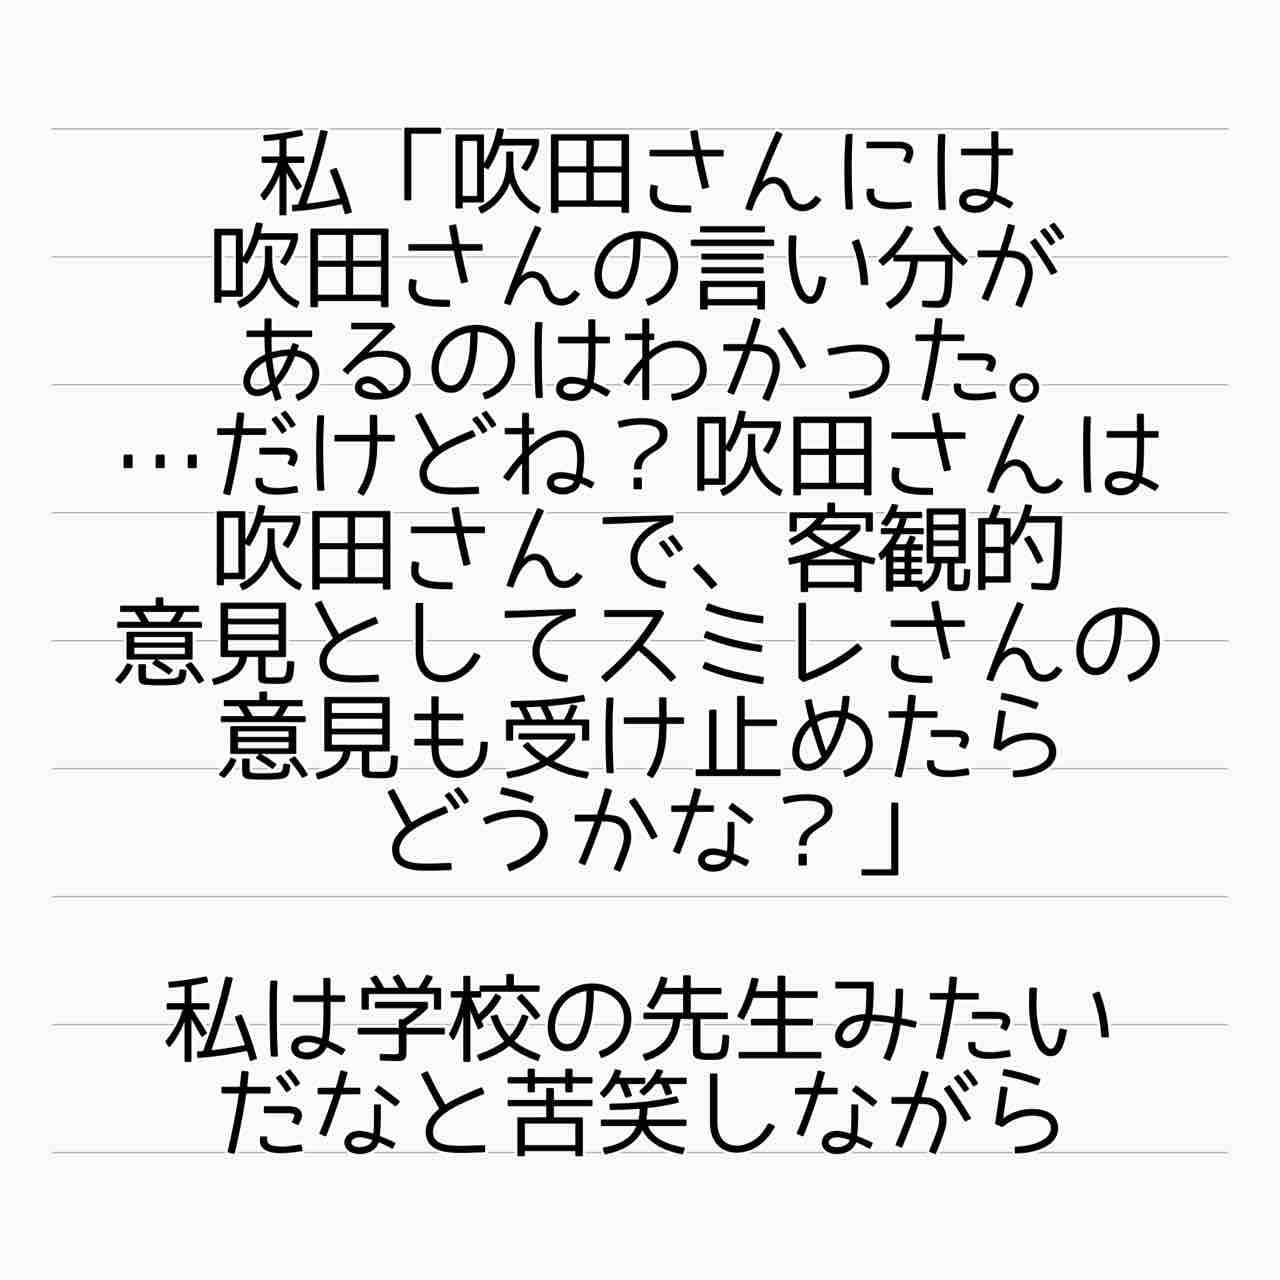 私「吹田さんには
吹田さんの言い分が
あるのはわかった。
…だけどね？吹田さんは
吹田さんで、客観的
意見としてスミレさんの
意見も受け止めたら
どうかな？」
私は学校の先生みたい
だなと苦笑しながら